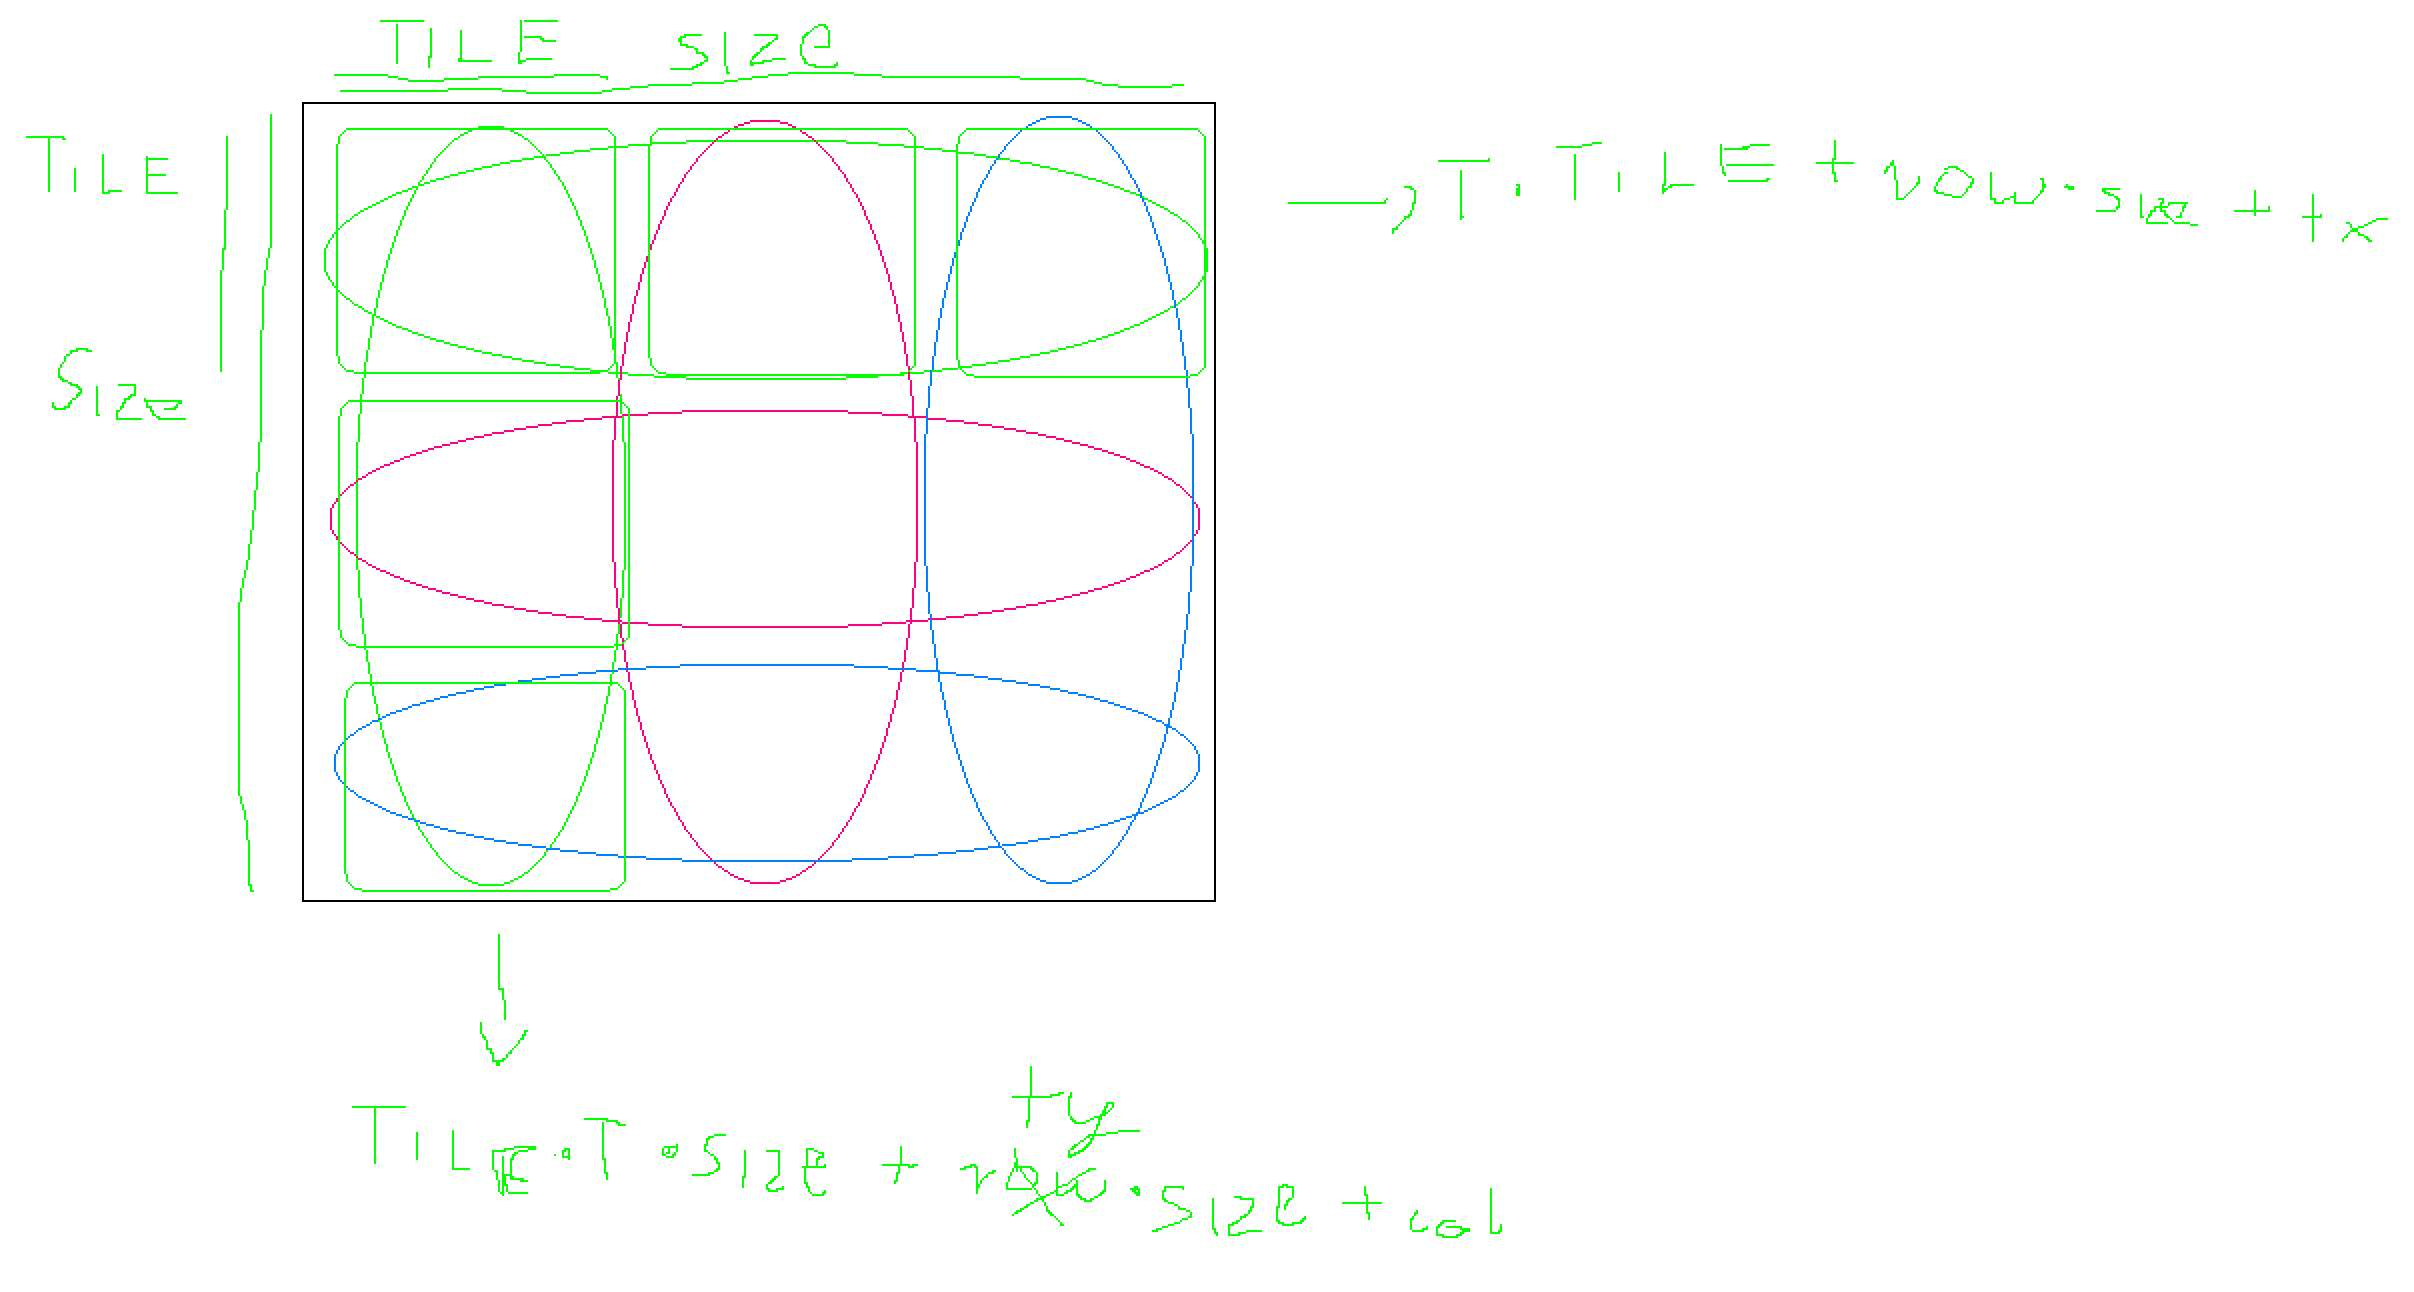 TILE SIZE
TILE
SIZE
T · TILE + row · size + tx
ty
TILE · T · SIZE + row · SIZE + col